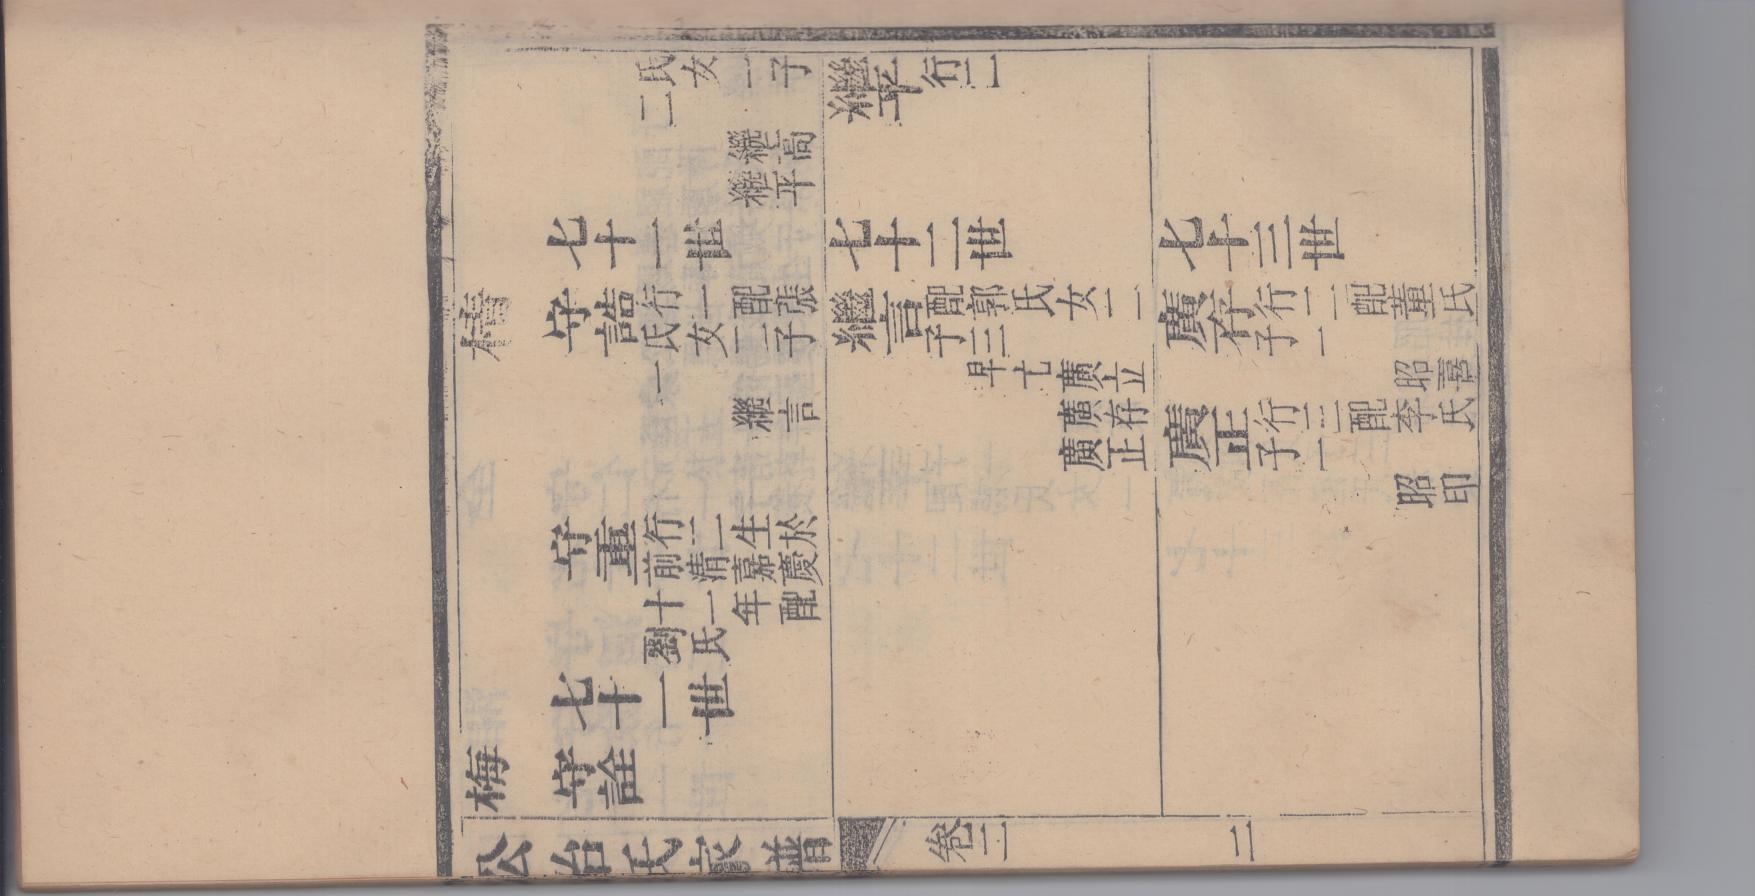 氏女一子
二
繼高
繼平
繼平 行二
七十一世
七十二世
七十三世
守誥 行一配張
氏女一子
一
繼言
繼言 配郭氏女二
子三
早亡廣立
廣存
廣正
廣存 行二配董氏
子一
昭喜
廣正 行三配李氏
子一
昭印
守重 行二生於
前清嘉慶
十一年配
劉氏
七十一世
梅 守詮
公冶氏家譜 卷二 二